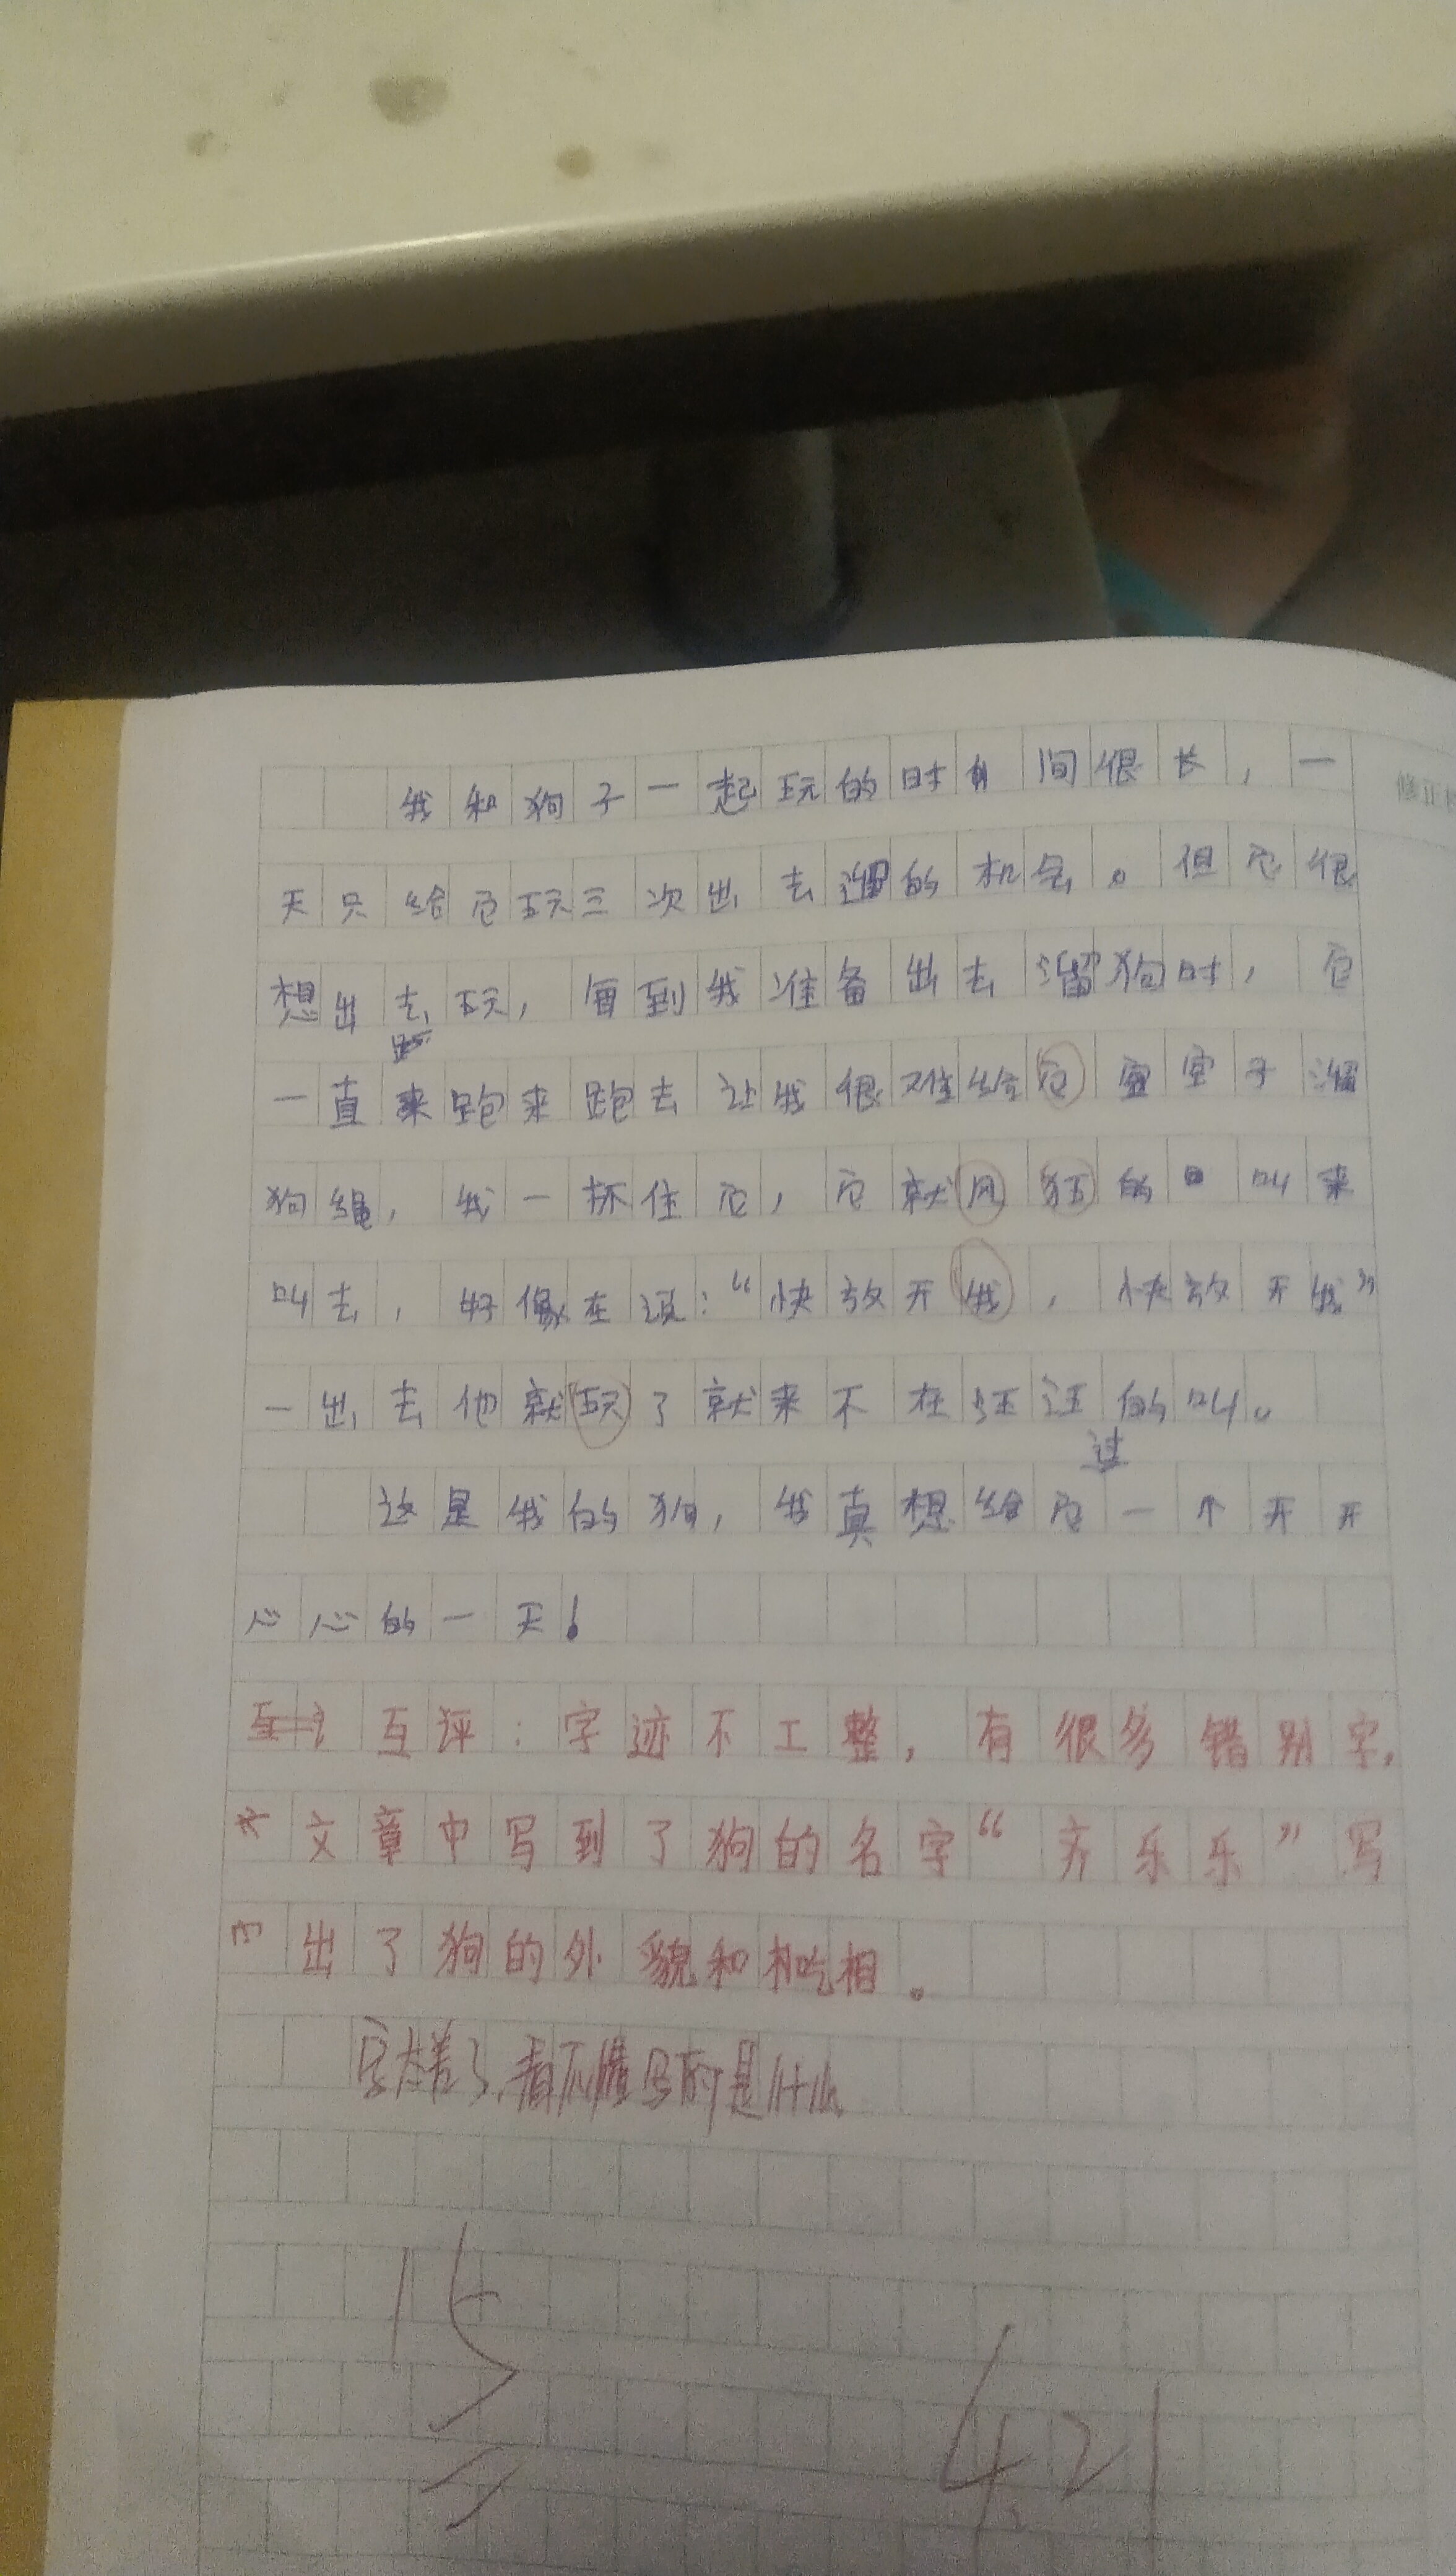 我和狗子一起玩的时间很长，一
天只给它玩三次出去遛的机会。但它很
想出去玩，每到我准备出去溜狗时，它
一直来跑来跑去让我很难给它 子溜
狗绳，我一抓住它，它就风狂的叫来
叫去，好像在说：“快放开我，快放开我”
一出去他就玩了就来不在汪汪的叫。
过
这是我的狗，我真想给它一个开开
心心的一天！
互评：字迹不工整，有很多错别字，
文章中写到了狗的名字“齐乐乐”写
出了狗的外貌和吃相。
字太差了，看不懂写的是什么
15
4.21
修正